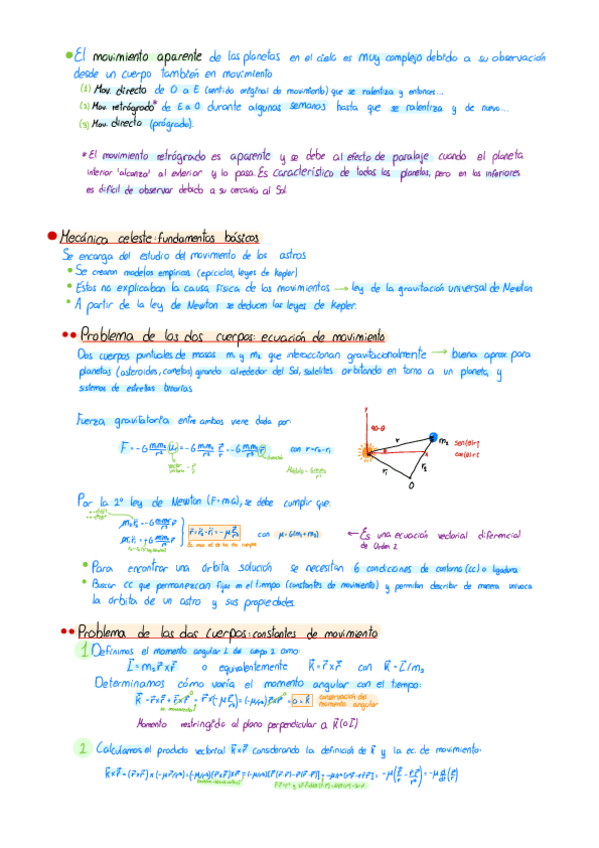 • El movimiento aparente de los planetas en el cielo es muy complejo debido a su observación
desde un cuerpo también en movimiento
(1) Mov. directo de O a E (sentido original de movimiento) que se ralentiza y entonces...
(2) Mov. retrógrado* de E a O durante algunas semanas hasta que se ralentiza y de nuevo...
(3) Mov. directo (prógrado).
* El movimiento retrógrado es aparente y se debe al efecto de paralaje cuando el planeta
inferior 'alcanza' al exterior y lo pasa. Es característico de todos los planetas, pero en los inferiores
es difícil de observar debido a su cercanía al Sol
• Mecánica celeste: fundamentos básicos
Se encarga del estudio del movimiento de los astros
• Se crearon modelos empíricos (epiciclos, leyes de Kepler)
• Estos no explicaban la causa física de los movimientos → ley de la gravitación universal de Newton
• A partir de la ley de Newton se deducen las leyes de Kepler.
•• Problema de los dos cuerpos: ecuación de movimiento
Dos cuerpos puntuales de masas m₁ y m₂ que interaccionan gravitacionalmente → buena aprox para
planetas (asteroides, cometas) girando alrededor del Sol, satélites orbitando en torno a un planeta, y
sistemas de estrellas binarias.
Fuerza gravitatoria entre ambos viene dada por:
con r=r₂-r₁
r
90-θ
r
m₂
r₁
r₂
O
Por la 2ª ley de Newton (F=m·a), se debe cumplir que:
con μ=G(m₁+m₂)
← Es una ecuación vectorial diferencial
de orden 2
• Para encontrar una órbita solución se necesitan 6 condiciones de contorno (cc) o ligadura
• Buscar cc que permanezcan fijas en el tiempo (constantes de movimiento) y permitan describir de manera unívoca
la órbita de un astro y sus propiedades.
•• Problema de los dos cuerpos: constantes de movimiento
1 Definimos el momento angular L de cuerpo 2 como:
L = m₂ r×ṙ o equivalentemente K = r×ṙ con K = L/m₂
Determinamos cómo varía el momento angular con el tiempo:
conservación del
momento angular
Momento restringido al plano perpendicular a K (o L)
2 Calculamos el producto vectorial K×r̈ considerando la definición de K y la ec. de movimiento: